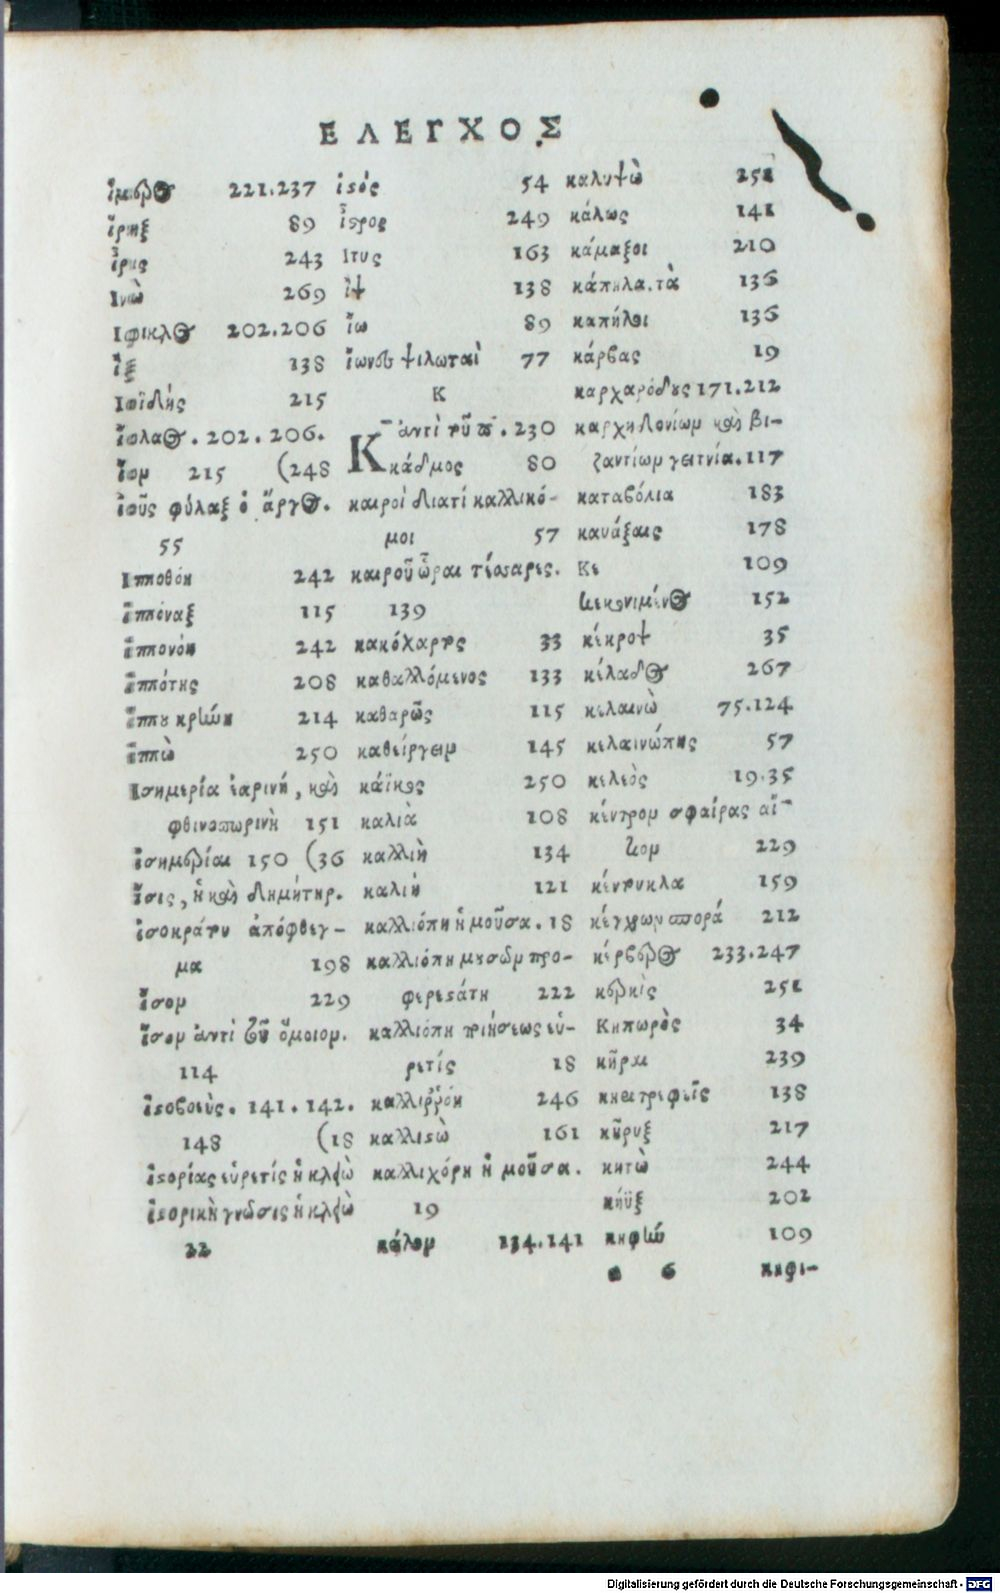 ΕΛΕΓΧΟΣ
ἵμερος 221.237
ἴρηξ 89
ἶρις 243
Ινὼ 269
Ιφικλος 202.206
ἲξ 138
Ιφιδλής 215
ἰόλαος. 202. 206.
ἴομ 215 (248
ἰοῦς φύλαξ ὁ ἄργος.
55
Ιπποθόη 242
ἱππόναξ 115
ἱππονόη 242
ἱππότης 208
ἵππου κρήνη 214
ἱππὼ 250
Ισημερία ἐαρινή, καὶ
φθινοπωρινὴ 151
ἰσημερίαι 150 (36
ἶσις, ἡ καὶ Δημήτηρ.
ἰσοκράτου ἀπόφθεγ-
μα 198
ἴσομ 229
ἴσομ ἀντὶ τοῦ ὅμοιομ.
114
ἱστοβοεύς. 141. 142.
148 (18
ἱστορίας εὑρετίς ἡ κλειὼ
ἱστορικὴ γνῶσις ἡ κλειὼ
22
ἱστός 54
ἴστρος 249
Ιτυς 163
ἲψ 138
ἴω 89
ἴωνες ψιλωταὶ 77
Κ
Κ ἀντὶ τοῦ π. 230
κάδμος 80
καιροὶ διατί καλλικό-
μοι 57
καιροῦ ὧραι τέσσαρες.
139
κακόχαρτος 33
καθαλλόμενος 133
καθαρῶς 115
καθείργειμ 145
κάϊκος 250
καλιὰ 108
καλλιὴ 134
καλιὴ 121
καλλιόπη ἡ μοῦσα. 18
καλλιόπη μουσῶμ προ-
φερεστάτη 222
καλλιόπη ποιήσεως εὑ-
ρετίς 18
καλλιῤῥόη 246
καλλιστὼ 161
καλλιχόρη ἡ μοῦσα.
19
κάλομ 134.141
καλυψὼ 251
κάλως 141
κάμαξοι 210
κάπηλα. τὰ 136
καπήλοι 136
κάρβας 19
καρχαρόδους 171.212
καρχηδονίωμ καὶ βι-
ζαντίωμ γειτνία. 117
καταβόλια 183
καυάξαις 178
Κε 109
κεκονιμένος 152
κέκροψ 35
κέλαδος 267
κελαινὼ 75.124
κελαινώπης 57
κελεὸς 19.35
κέντρομ σφαίρας αἴ-
κομ 229
κέντυκλα 159
κέγχρωμ σπορά 212
κέρβερος 233.247
κερκὶς 251
Κηπωρὸς 34
κῆραι 239
κηειτρεφεῖς 138
κῆρυξ 217
κητὼ 244
κήϋξ 202
κηφήν 109
α 6 κηφι-
Digitalisierung gefördert durch die Deutsche Forschungsgemeinschaft - DFG